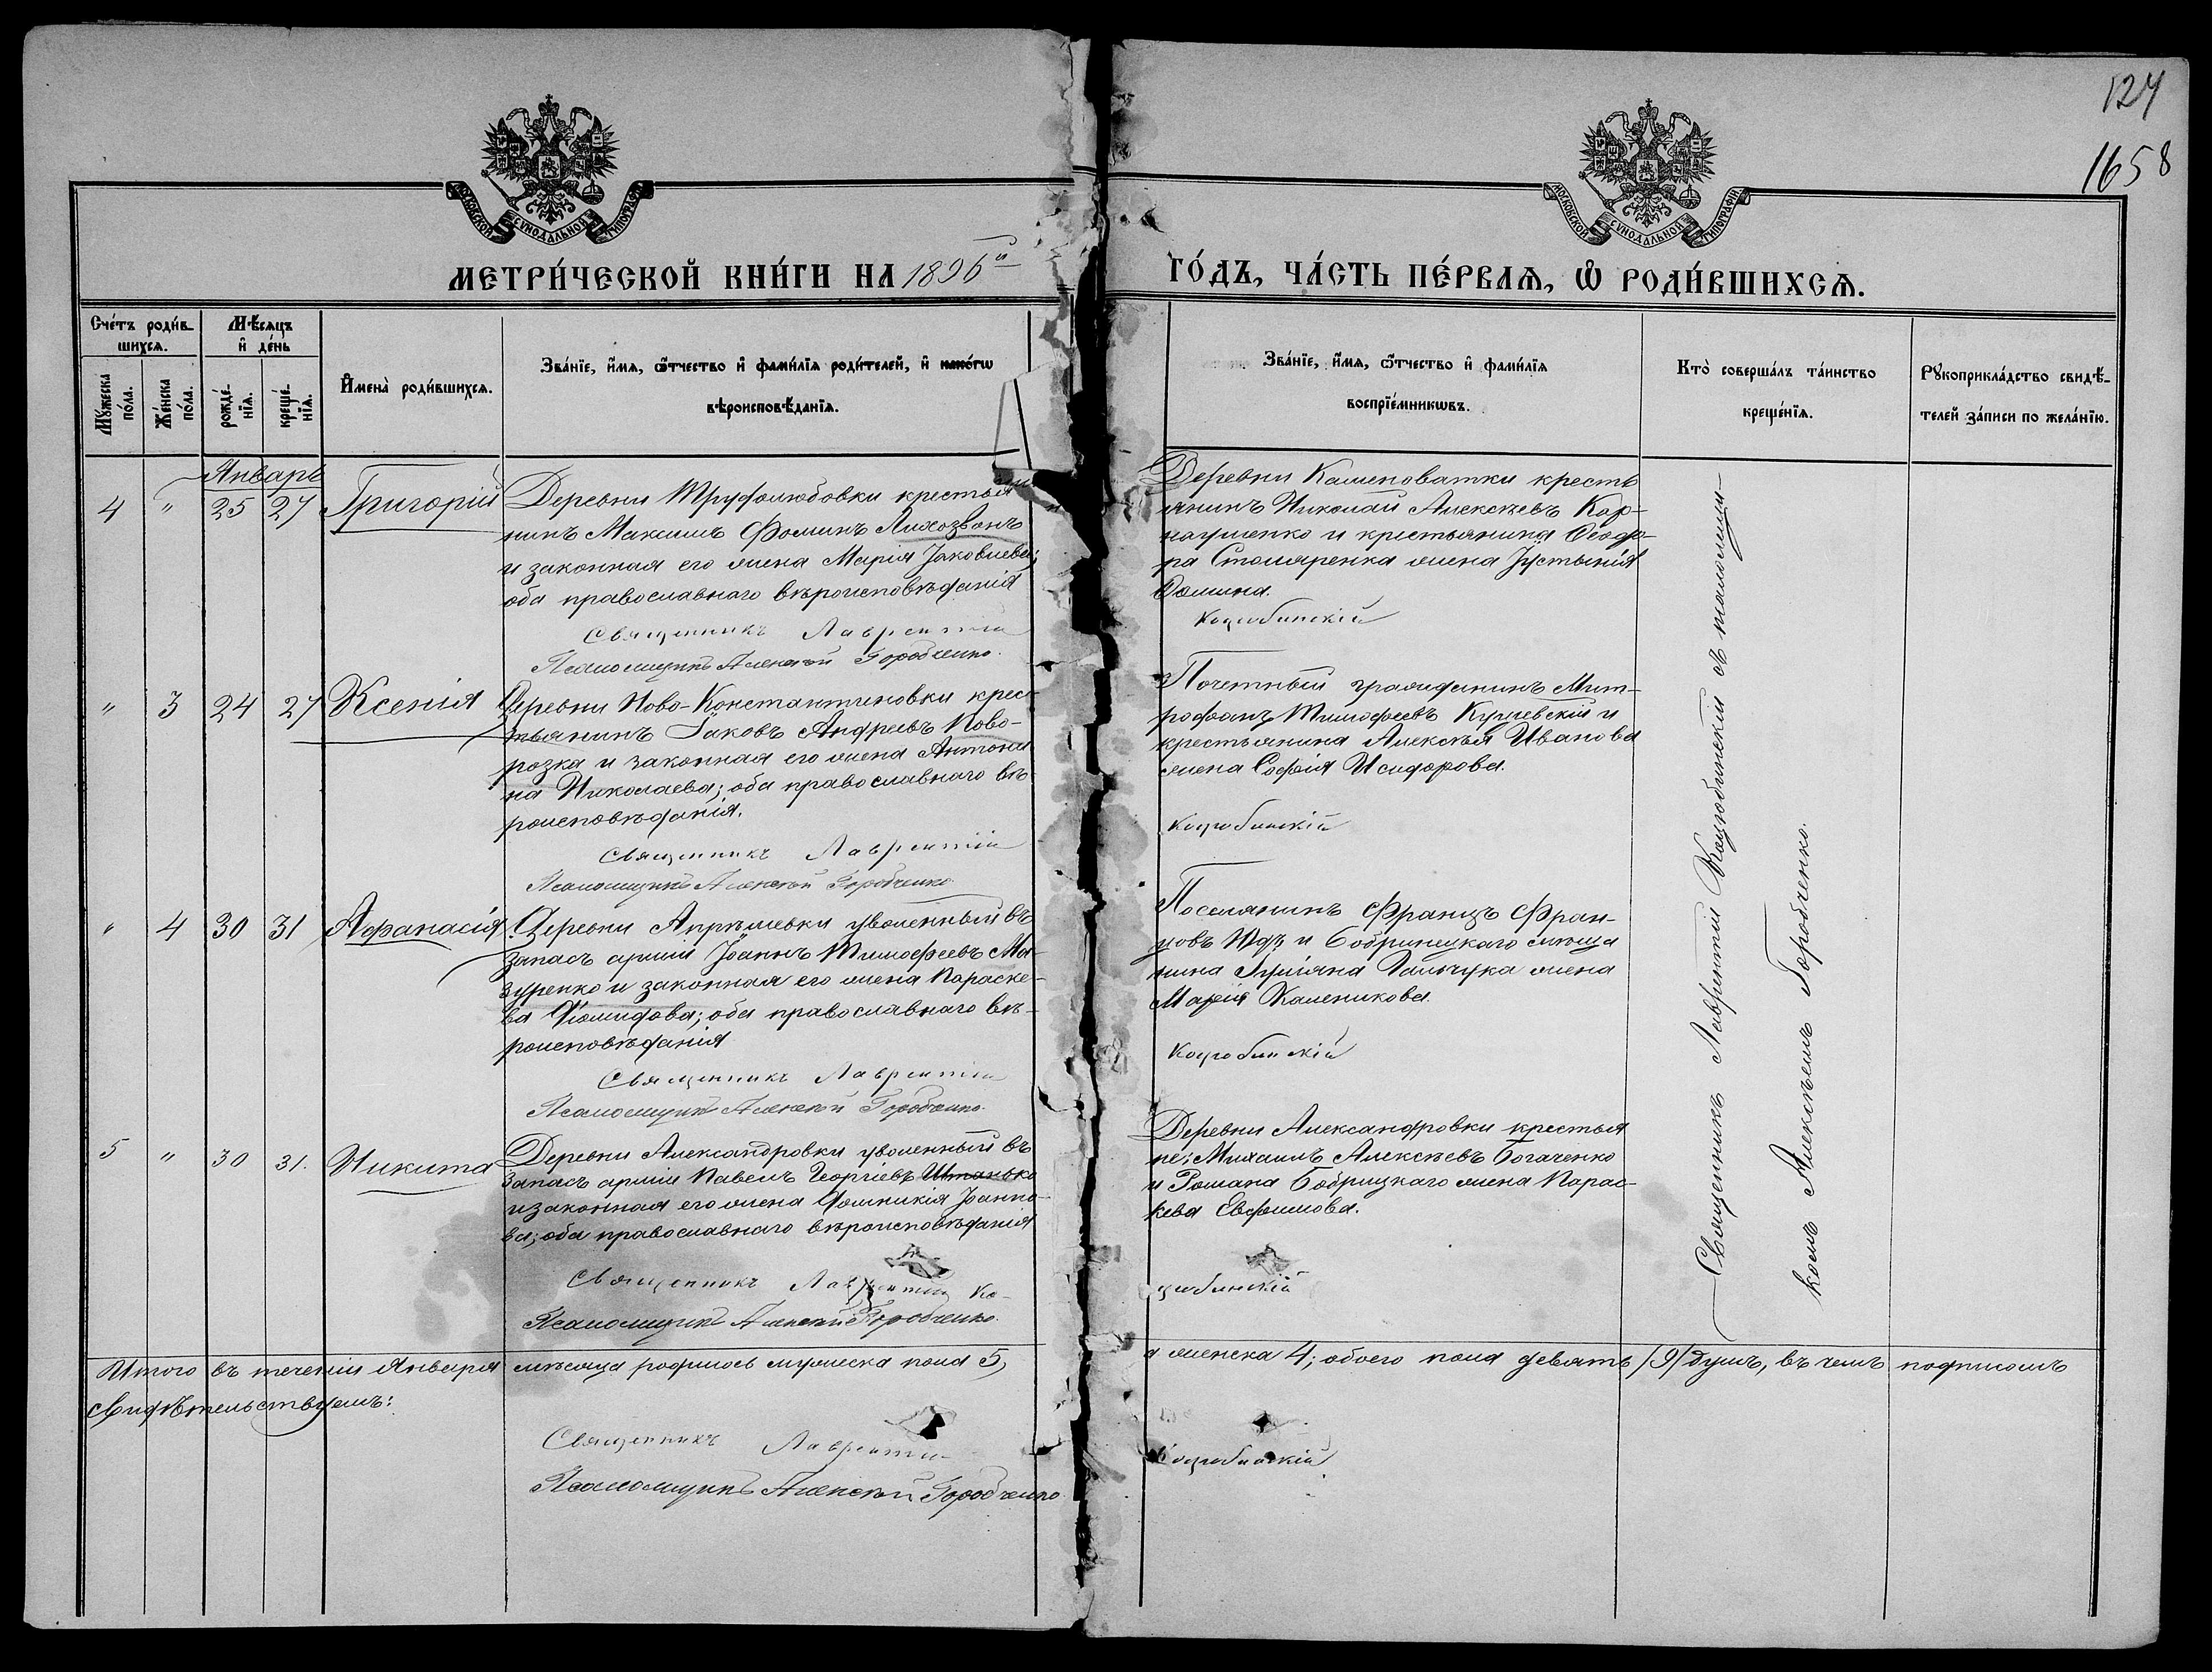 124
1658
МОСКОВСКОЙ СѴНОДАЛЬНОЙ ТИПОГРАФІИ
МОСКОВСКОЙ СѴНОДАЛЬНОЙ ТИПОГРАФІИ
МЕТРИ́ЧЕСКОЙ КНИ́ГИ НА 1896й
ГО́ДЪ, ЧА́СТЬ ПЕ́РВАѦ, Ѡ҆ РОДИ́ВШИХСѦ.
Сче́тъ роди́в-
шихсѧ.
Мѣ́сѧцъ
и҆ де́нь
Мꙋ́жеска по́ла.
Же́нска по́ла.
рожде́-
нїѧ.
креще́-
нїѧ.
И҆мена̀ роди́вшихсѧ.
Зва́нїе, и҆́мѧ, ѻ҆́тчество и҆ фами́лїѧ роди́телей, и҆ како́гѡ
вѣроисповѣ́данїѧ.
Зва́нїе, и҆́мѧ, ѻ҆́тчество и҆ фами́лїѧ
воспрїе́мникѡвъ.
Кто̀ соверша́лъ та́инство
креще́нїѧ.
Рꙋкоприкла́дство свидѣ́-
телей за́писи по жела́нїю.
Январь
4 " 25 27 Григорій
Деревни Трудолюбовки крестья-
нинъ Максимъ Фоминъ Лихозвонъ
и законная его жена Марія Іаковлева;
оба православнаго вѣроисповѣданія
Священникъ Лаврентій
Псаломщикъ Алексѣй Горобченко.
Деревни Каменоватки кресть
янинъ Николай Алексѣевъ Кар-
паушенко и крестьянина Ѳеодо-
ра Столяренка жена Іустинія
Фомина.
Коцюбинскій
" 3 24 27 Ксенія
Деревни Ново-Константиновки крес-
тьянинъ Іаковъ Андреевъ Ково-
розка и законная его жена Антони
на Николаева; оба православнаго вѣ-
роисповѣданія.
Священникъ Лаврентій
Псаломщикъ Алексѣй Горобченко
Почетный гражданинъ Мит-
рофанъ Тимофеевъ и
крестьянина Алексѣя Иванова
жена Софія Исидорова.
Коцюбинскій
" 4 30 31 Афанасія
Деревни уволенный въ
запасъ арміи Іоаннъ Тимофеевъ Ма-
зуренко и законная его жена Параске-
ва Діомидова; оба православнаго вѣ-
роисповѣданія
Священникъ Лаврентій
Псаломщикъ Алексѣй Горобченко.
Поселянинъ Францъ Фран-
цовъ и Бобринецкаго мѣща
нина жена
Марія Каленикова.
Коцюбинскій
5 " 30 31. Никита
Деревни Александровки уволенный въ
запасъ арміи Павелъ Георгіевъ Штанько
и законная его жена Домникія Іоанно-
ва; оба православнаго вѣроисповѣданія
Священникъ Лаврентій Ко-
Псаломщикъ Алексѣй Горобченко.
Деревни Александровки крестья
не: Михаилъ Алексѣевъ Богаченко
и Романа Бобрицкаго жена Парас-
кева Евфимова.
цюбинскій
Священникъ Лаврентій Коцюбинскій съ псаломщи-
комъ Алексѣемъ Горобченко.
Итого въ теченіи Января мѣсяца родилось мужеска пола 5,
а женска 4; обоего пола девять /9/ душъ, въ чемъ подписомъ
свидѣтельствуемъ:
Священникъ Лаврентій
Коцюбинскій
Псаломщикъ Алексѣй Горобченко